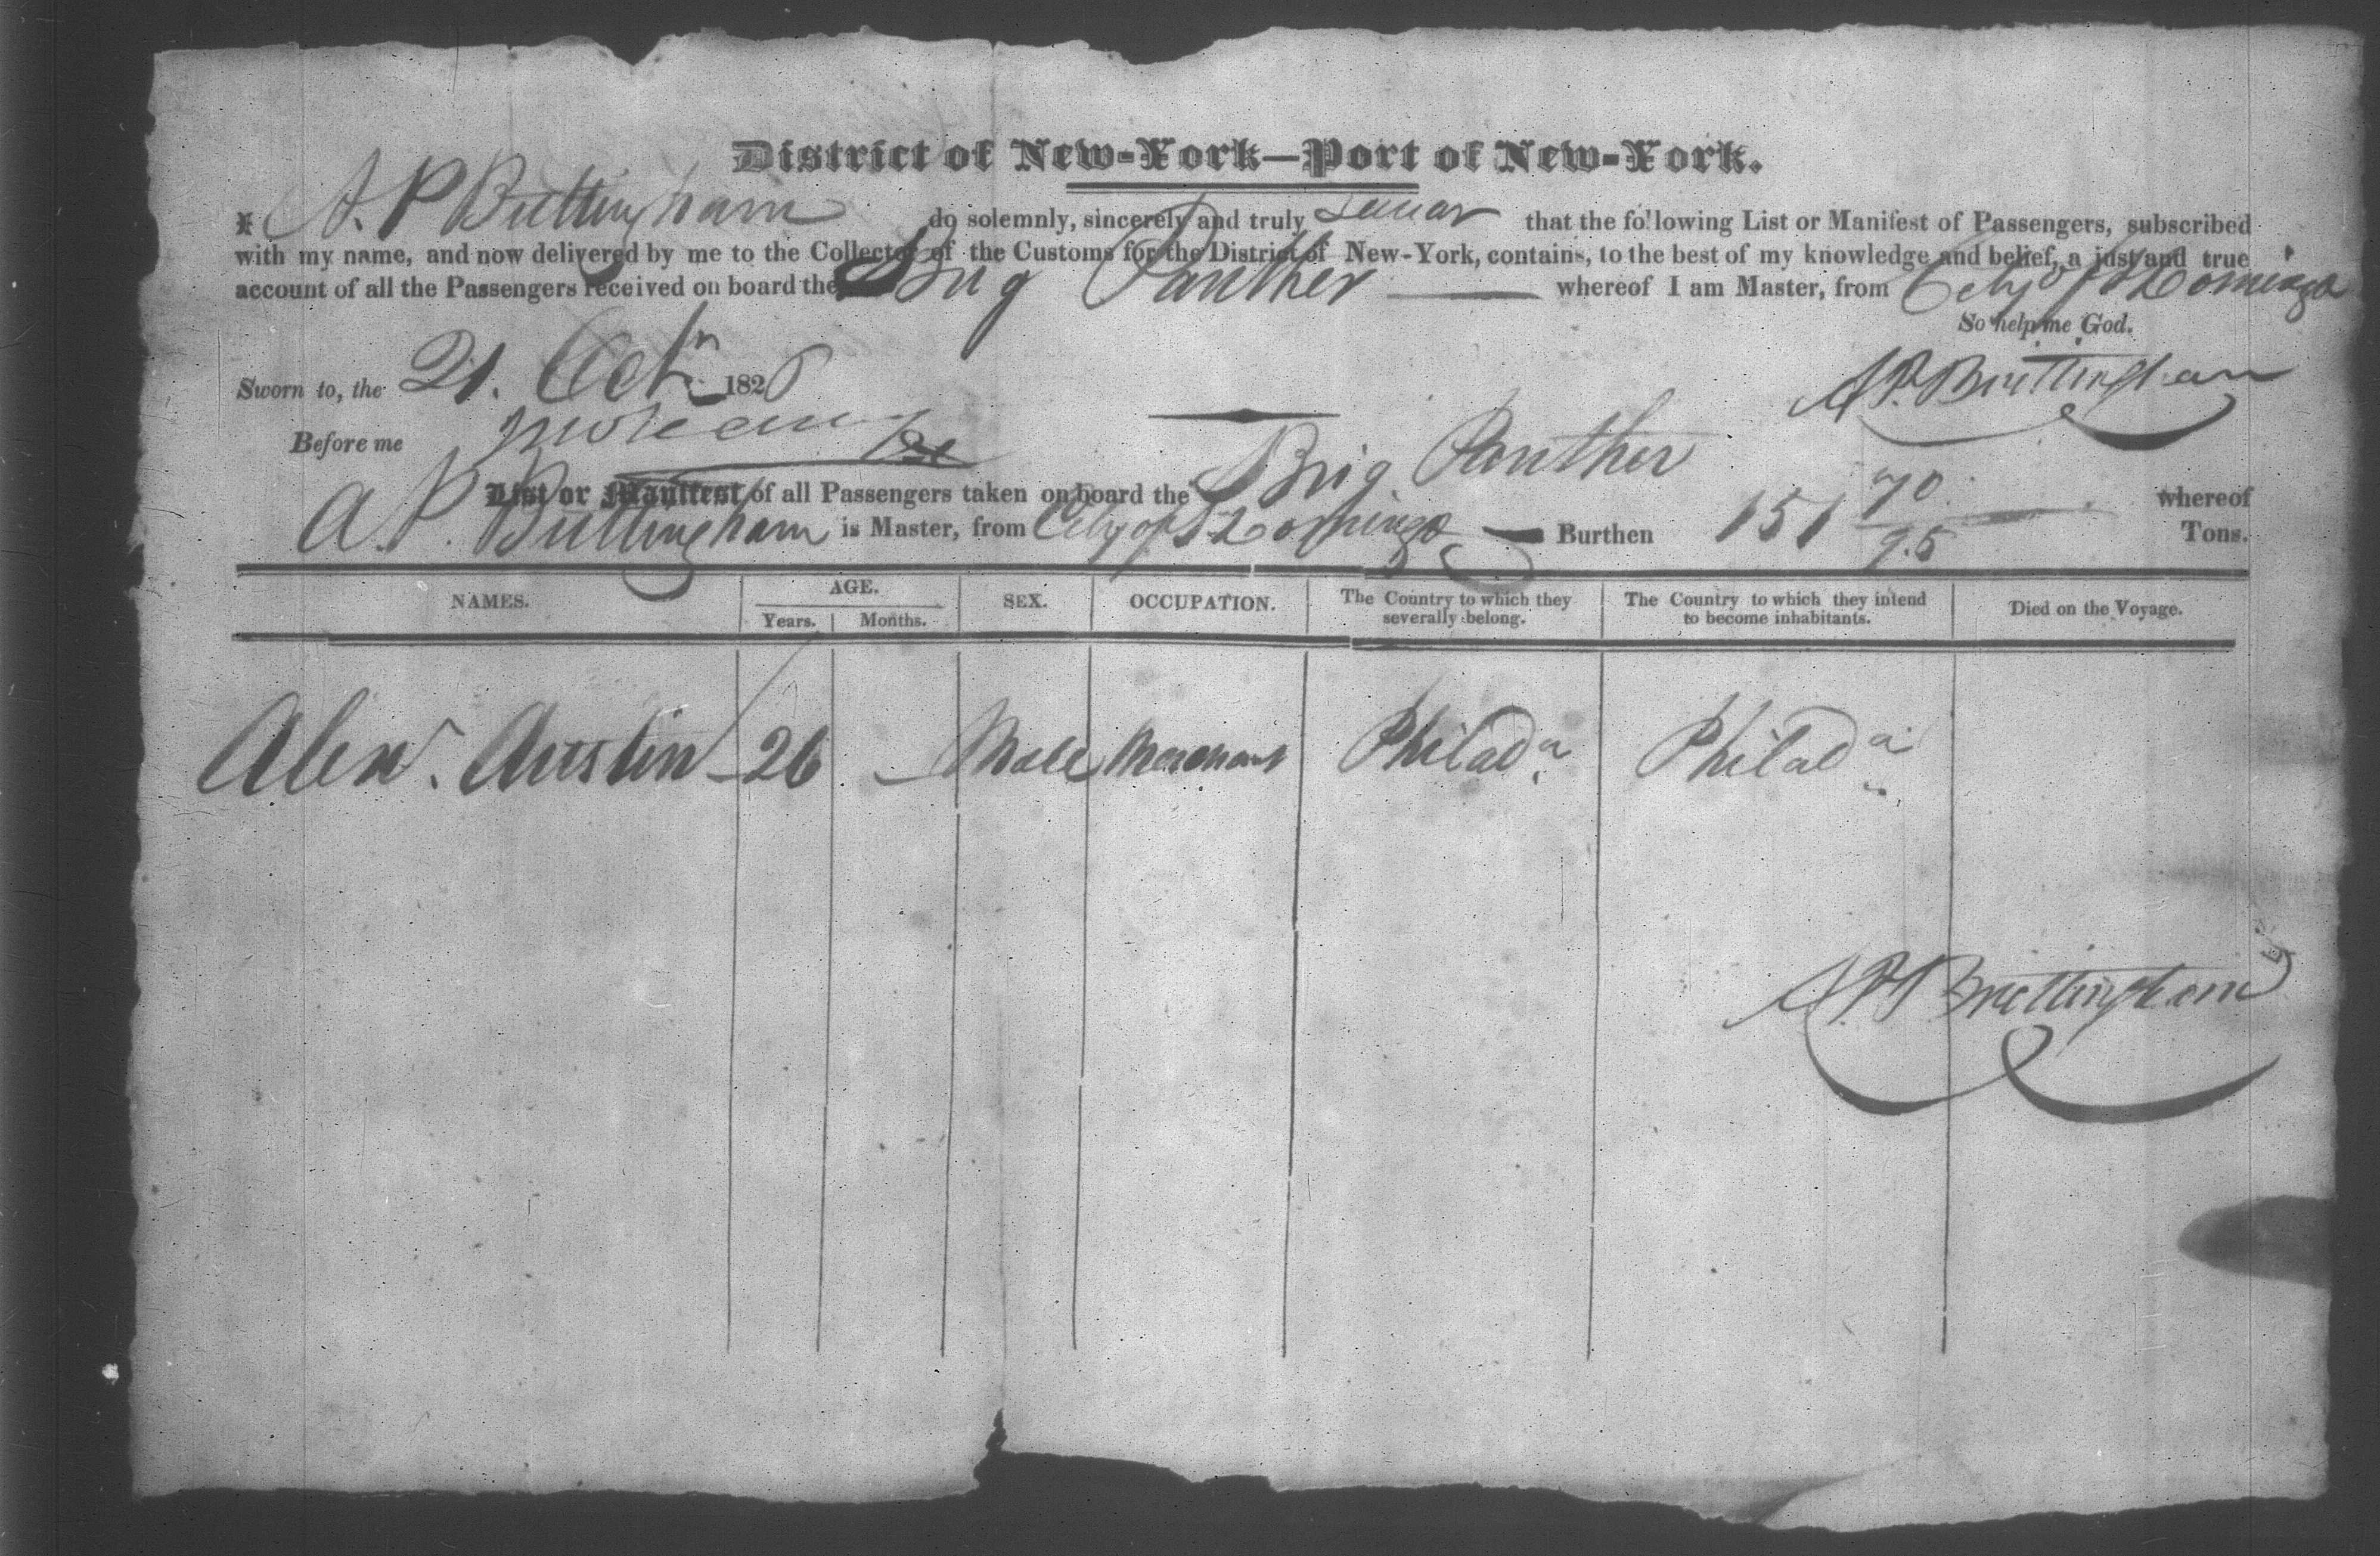 District of New-York—Port of New-York.
I A. P. Buttingham do solemnly, sincerely and truly swear that the following List or Manifest of Passengers, subscribed
with my name, and now delivered by me to the Collector of the Customs for the District of New-York, contains, to the best of my knowledge and belief, a just and true
account of all the Passengers received on board the Brig Panther whereof I am Master, from City of St Domingo
So help me God.
Sworn to, the 21. Octr 1826
A P. Brittingham
Before me
List or Manifest of all Passengers taken on board the Brig Panther whereof
A. P. Buttingham is Master, from City of St Domingo Burthen 151 70/95 Tons.
NAMES. AGE. SEX. OCCUPATION. The Country to which they severally belong. The Country to which they intend to become inhabitants. Died on the Voyage.
Years. Months.
Alexr. Austin 26 — Male Merchant Philada. Philada.
A. P. Brittingham